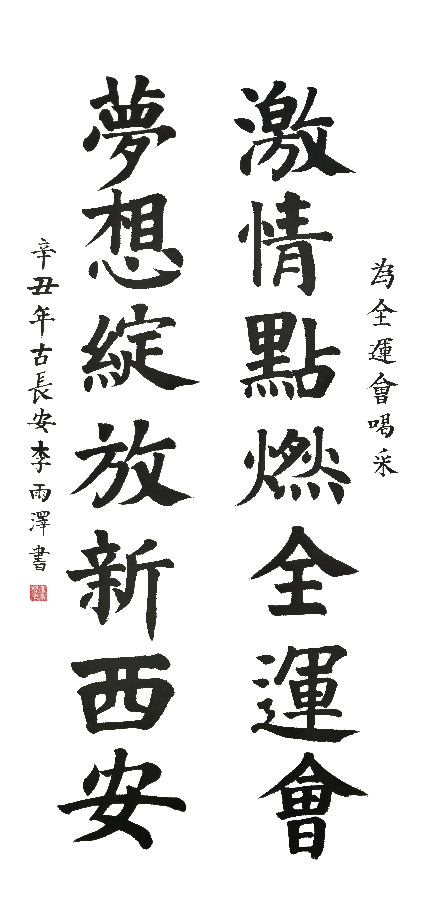 為全運會喝采
激情點燃全運會
夢想綻放新西安
辛丑年古長安李雨澤書